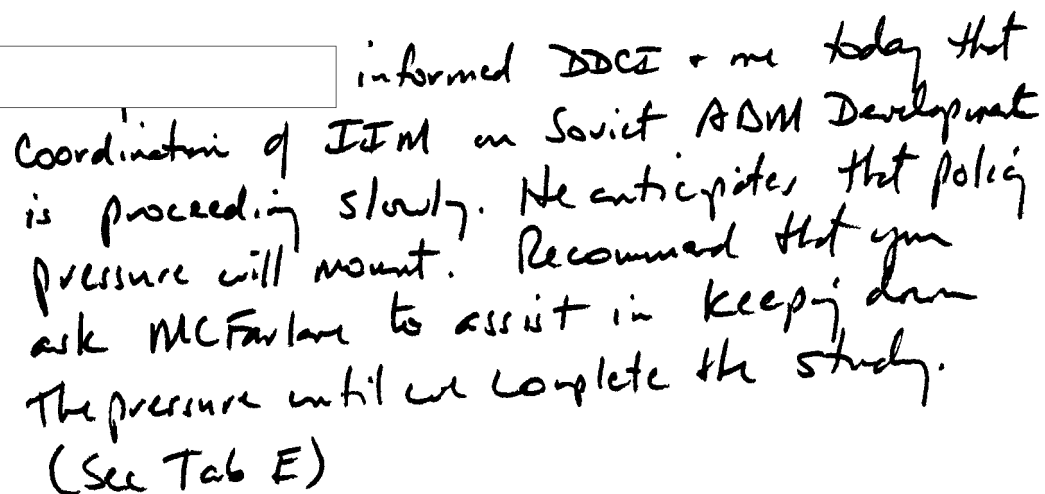 informed DDCI + me today that
Coordination of IIM on Soviet ABM Development
is proceeding slowly. He anticipates that policy
pressure will mount. Recommend that you
ask McFarlane to assist in keeping down
The pressure until we complete the study.
(See Tab E)